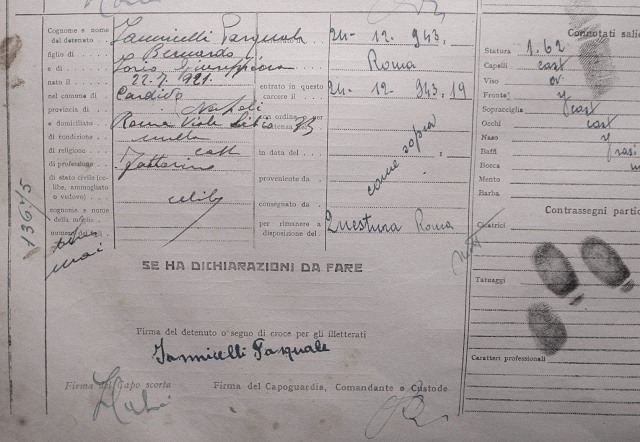 Cognome e nome del detenuto Iannicelli Pasquale
figlio di Bernardo
e di Iorio Giuseppina
nato il 22.7.921.
nel comune di Cardito
provincia di (Napoli
e domiciliato Roma Viale Libia 93
di condizione nulla
di religione catt
di professione fattorino
di stato civile (celibe, ammogliato o vedovo) celibe
cognome e nome della moglie
numero dei figli
mai
13645
24. 12. 943.
Roma
entrato in questo carcere il 24. 12. 943. 19
in data del
come sopra
proveniente da
consegnato da
per rimanere a disposizione del Questura Roma
SE HA DICHIARAZIONI DA FARE
Firma del detenuto o segno di croce per gli illetterati
Iannicelli Pasquale
Firma del Capo scorta
Firma del Capoguardia, Comandante o Custode
Connotati salie
Statura 1.62
Capelli cast
Viso ov
Fronte
Sopracciglia cast
Occhi cast
Naso
Baffi
Bocca
Mento
Barba
Contrassegni partic
Cicatrici
Tatuaggi
Caratteri professionali